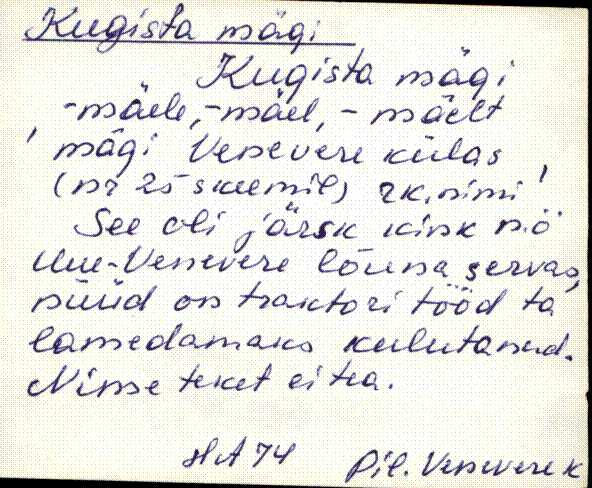 Kugista mägi
Kugista mägi
-mäele, -mäel, -mäelt
' mägi Venevere külas
(nr 25 skeemil) rk. nimi '
See oli järsk kink n.ö
Uue-Venevere lõuna servas,
nüüd on traktori tööd ta
lamedamaks kulutanud.
Nime teket ei tea.
HA 74 Pil. Venevere k